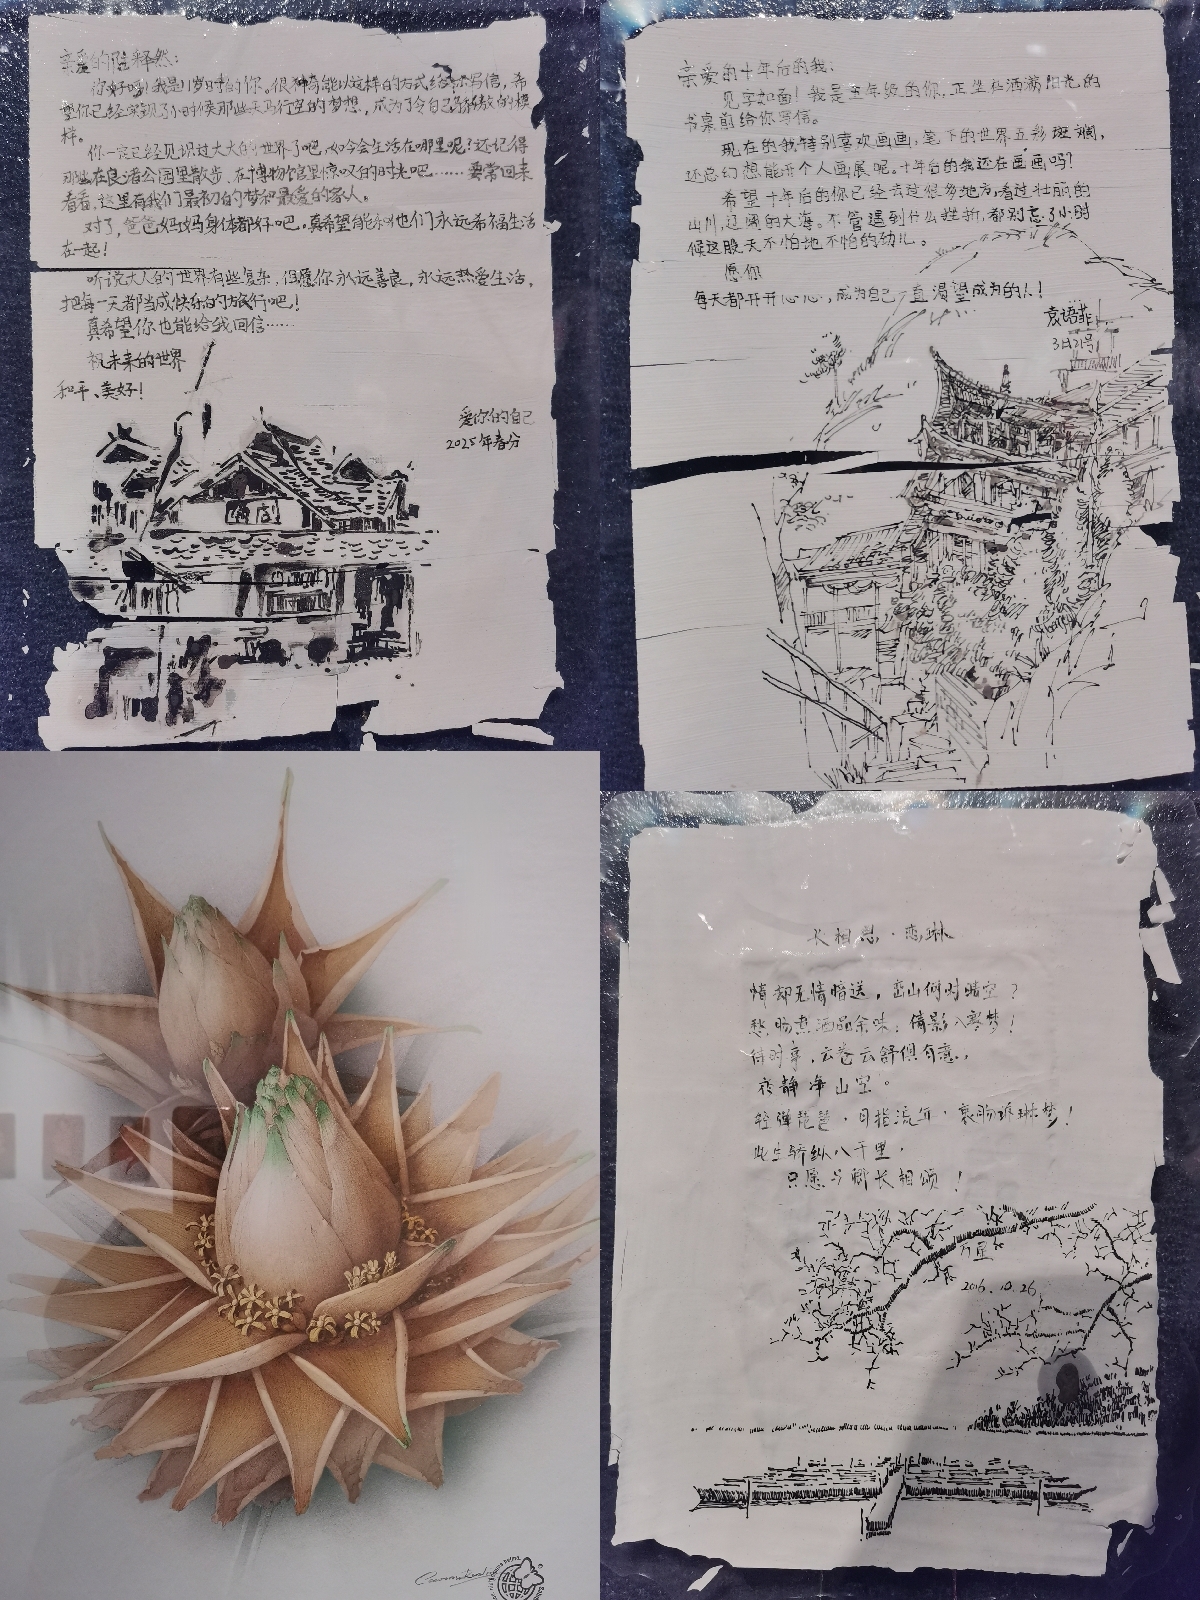 亲爱的陆释然：
你好吗！我是11岁时的你。很神奇能以这样的方式给你写信，希
望你已经实现了小时候那些天马行空的梦想，成为了令自己骄傲的模
样。
你一定已经见识过大大的世界了吧，如今会生活在哪里呢？还记得
那些在良渚公园里散步、在博物馆里惊叹的时光吧……要常回来
看看，这里有我们最初的梦和最爱的家人。
对了，爸爸妈妈身体都好吧，真希望能和他们永远幸福生活
在一起！
听说大人的世界有些复杂，但愿你永远善良，永远热爱生活，
把每一天都当成快乐的旅行吧！
真希望你也能给我回信……
祝未来的世界
和平、美好！
爱你的自己
2025年春分
亲爱的十年后的我：
见字如面！我是五年级的你，正坐在洒满阳光的
书桌前给你写信。
现在的我特别喜欢画画，笔下的世界五彩斑斓，
还总幻想能开个人画展呢。十年后的我还在画画吗？
希望十年后的你已经去过很多地方，看过壮丽的
山川，辽阔的大海。不管遇到什么挫折，都别忘了小时
候这股天不怕地不怕的劲儿。
愿你
每天都开开心心，成为自己一直渴望成为的人！
袁语菲
3月21号
长相思·恋琳
情却无情暗送，峦山何时晴空？
愁肠煮酒品余味，倩影入寒梦！
待时节，云卷云舒俱有意，
夜静净山空。
轻弹琵琶，月指流年，衷肠诉琳梦！
此生骄纵八千里，
只愿与卿长相颂！
万里
2016.10.26